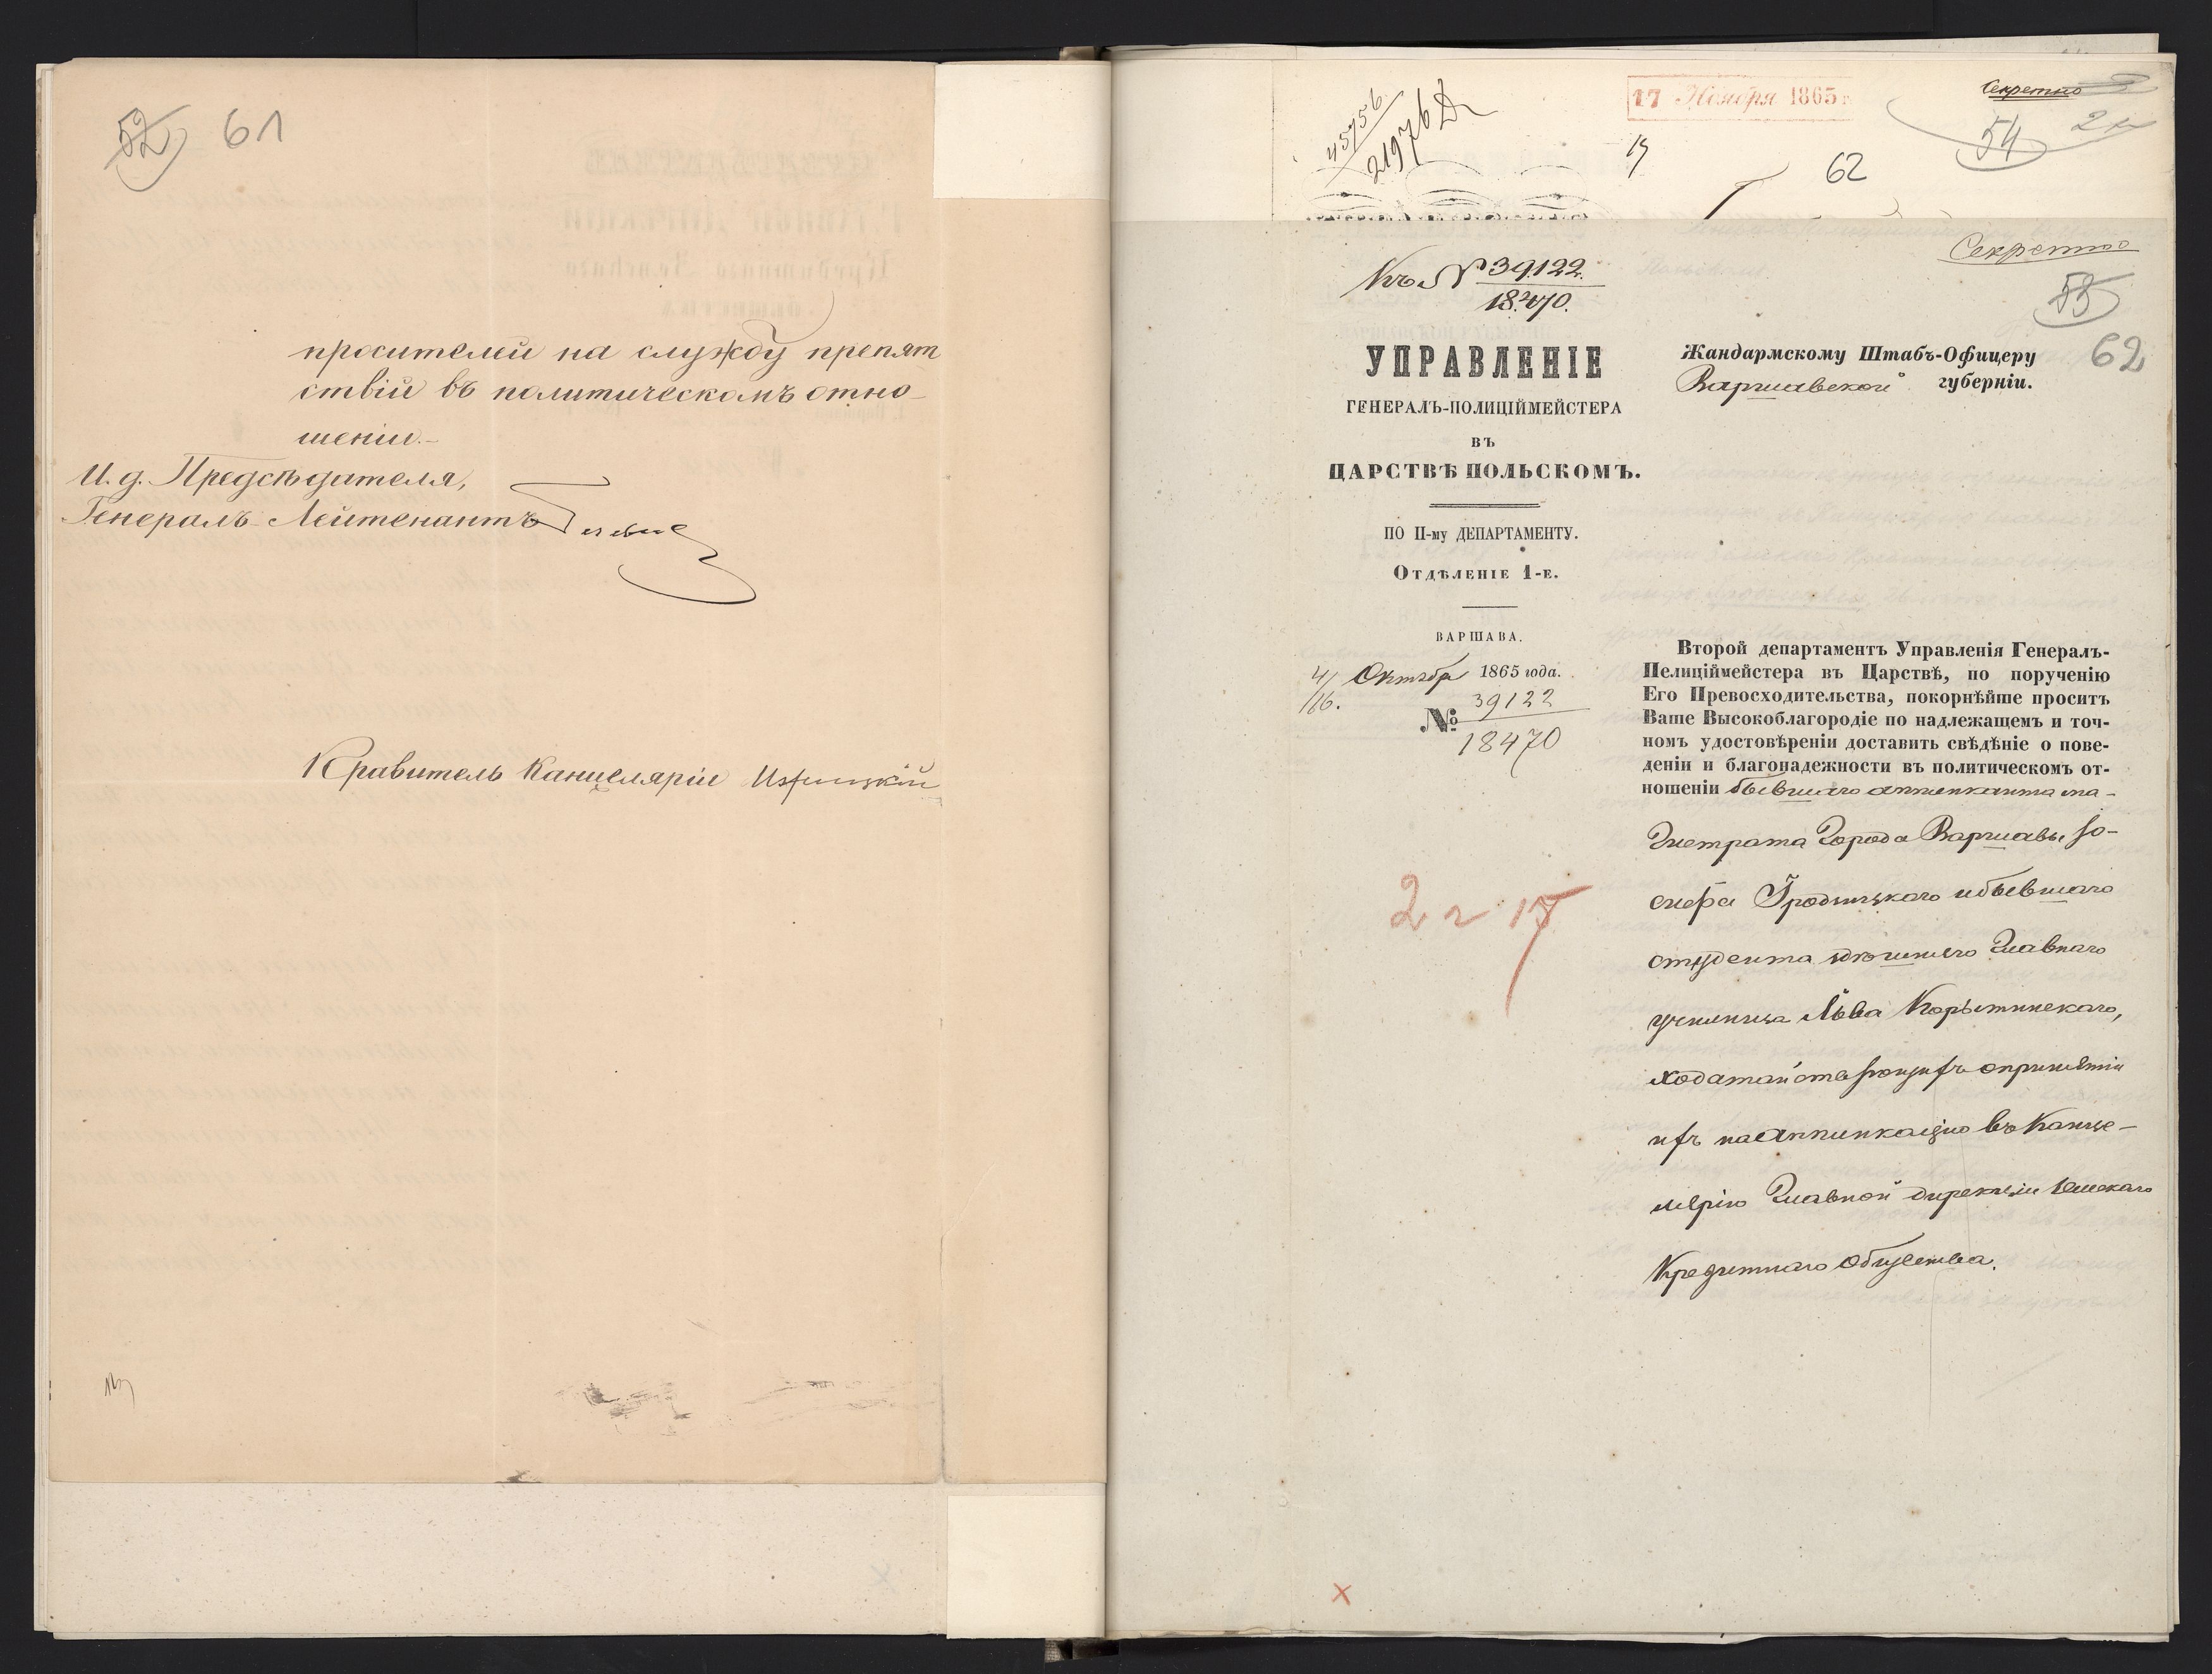 52 61
просителей на службу препят
ствій въ политическомъ отно-
шеніи.-
И. д. Предсѣдателя,
Генералъ-Лейтенантъ
Правитель Канцеляріи
45756
21976
17 Ноября 1865 г.
Секретно
54
19
62
Секретно
Къ № 39122
18470.
53
62
УПРАВЛЕНІЕ
ГЕНЕРАЛЪ-ПОЛИЦІЙМЕЙСТЕРА
ВЪ
ЦАРСТВѢ ПОЛЬСКОМЪ.
ПО II-му ДЕПАРТАМЕНТУ.
Отдѣленіе 1-е.
ВАРШАВА.
4/16. Октябр 1865 года.
№ 39122
18470
2 17
Жандармскому Штабъ-Офицеру
Варшавской губерніи.
Второй департаментъ Управленія Генералъ-
Пелиціймейстера въ Царствѣ, по порученію
Его Превосходительства, покорнѣйше проситъ
Ваше Высокоблагородіе по надлежащемъ и точ-
номъ удостовѣреніи доставить свѣдѣніе о пове-
деніи и благонадежности въ политическомъ от-
ношеніи бывшаго аппликанта ма-
гистрата города Варшавы Іо-
сифа Гродзицкаго и бывшаго
студента здѣшняго Главнаго
училища Льва Корытинскаго,
ходатайствующихъ о принятіи
ихъ на аппликацію въ Канце-
лярію Главной дирекціи Земскаго
Кредитнаго Общества.